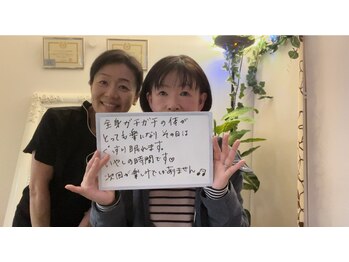 全身ガチガチの体が
とっても楽になり その日は
ぐっすり眠れます。
いやしの時間です♡
次回が楽しみで